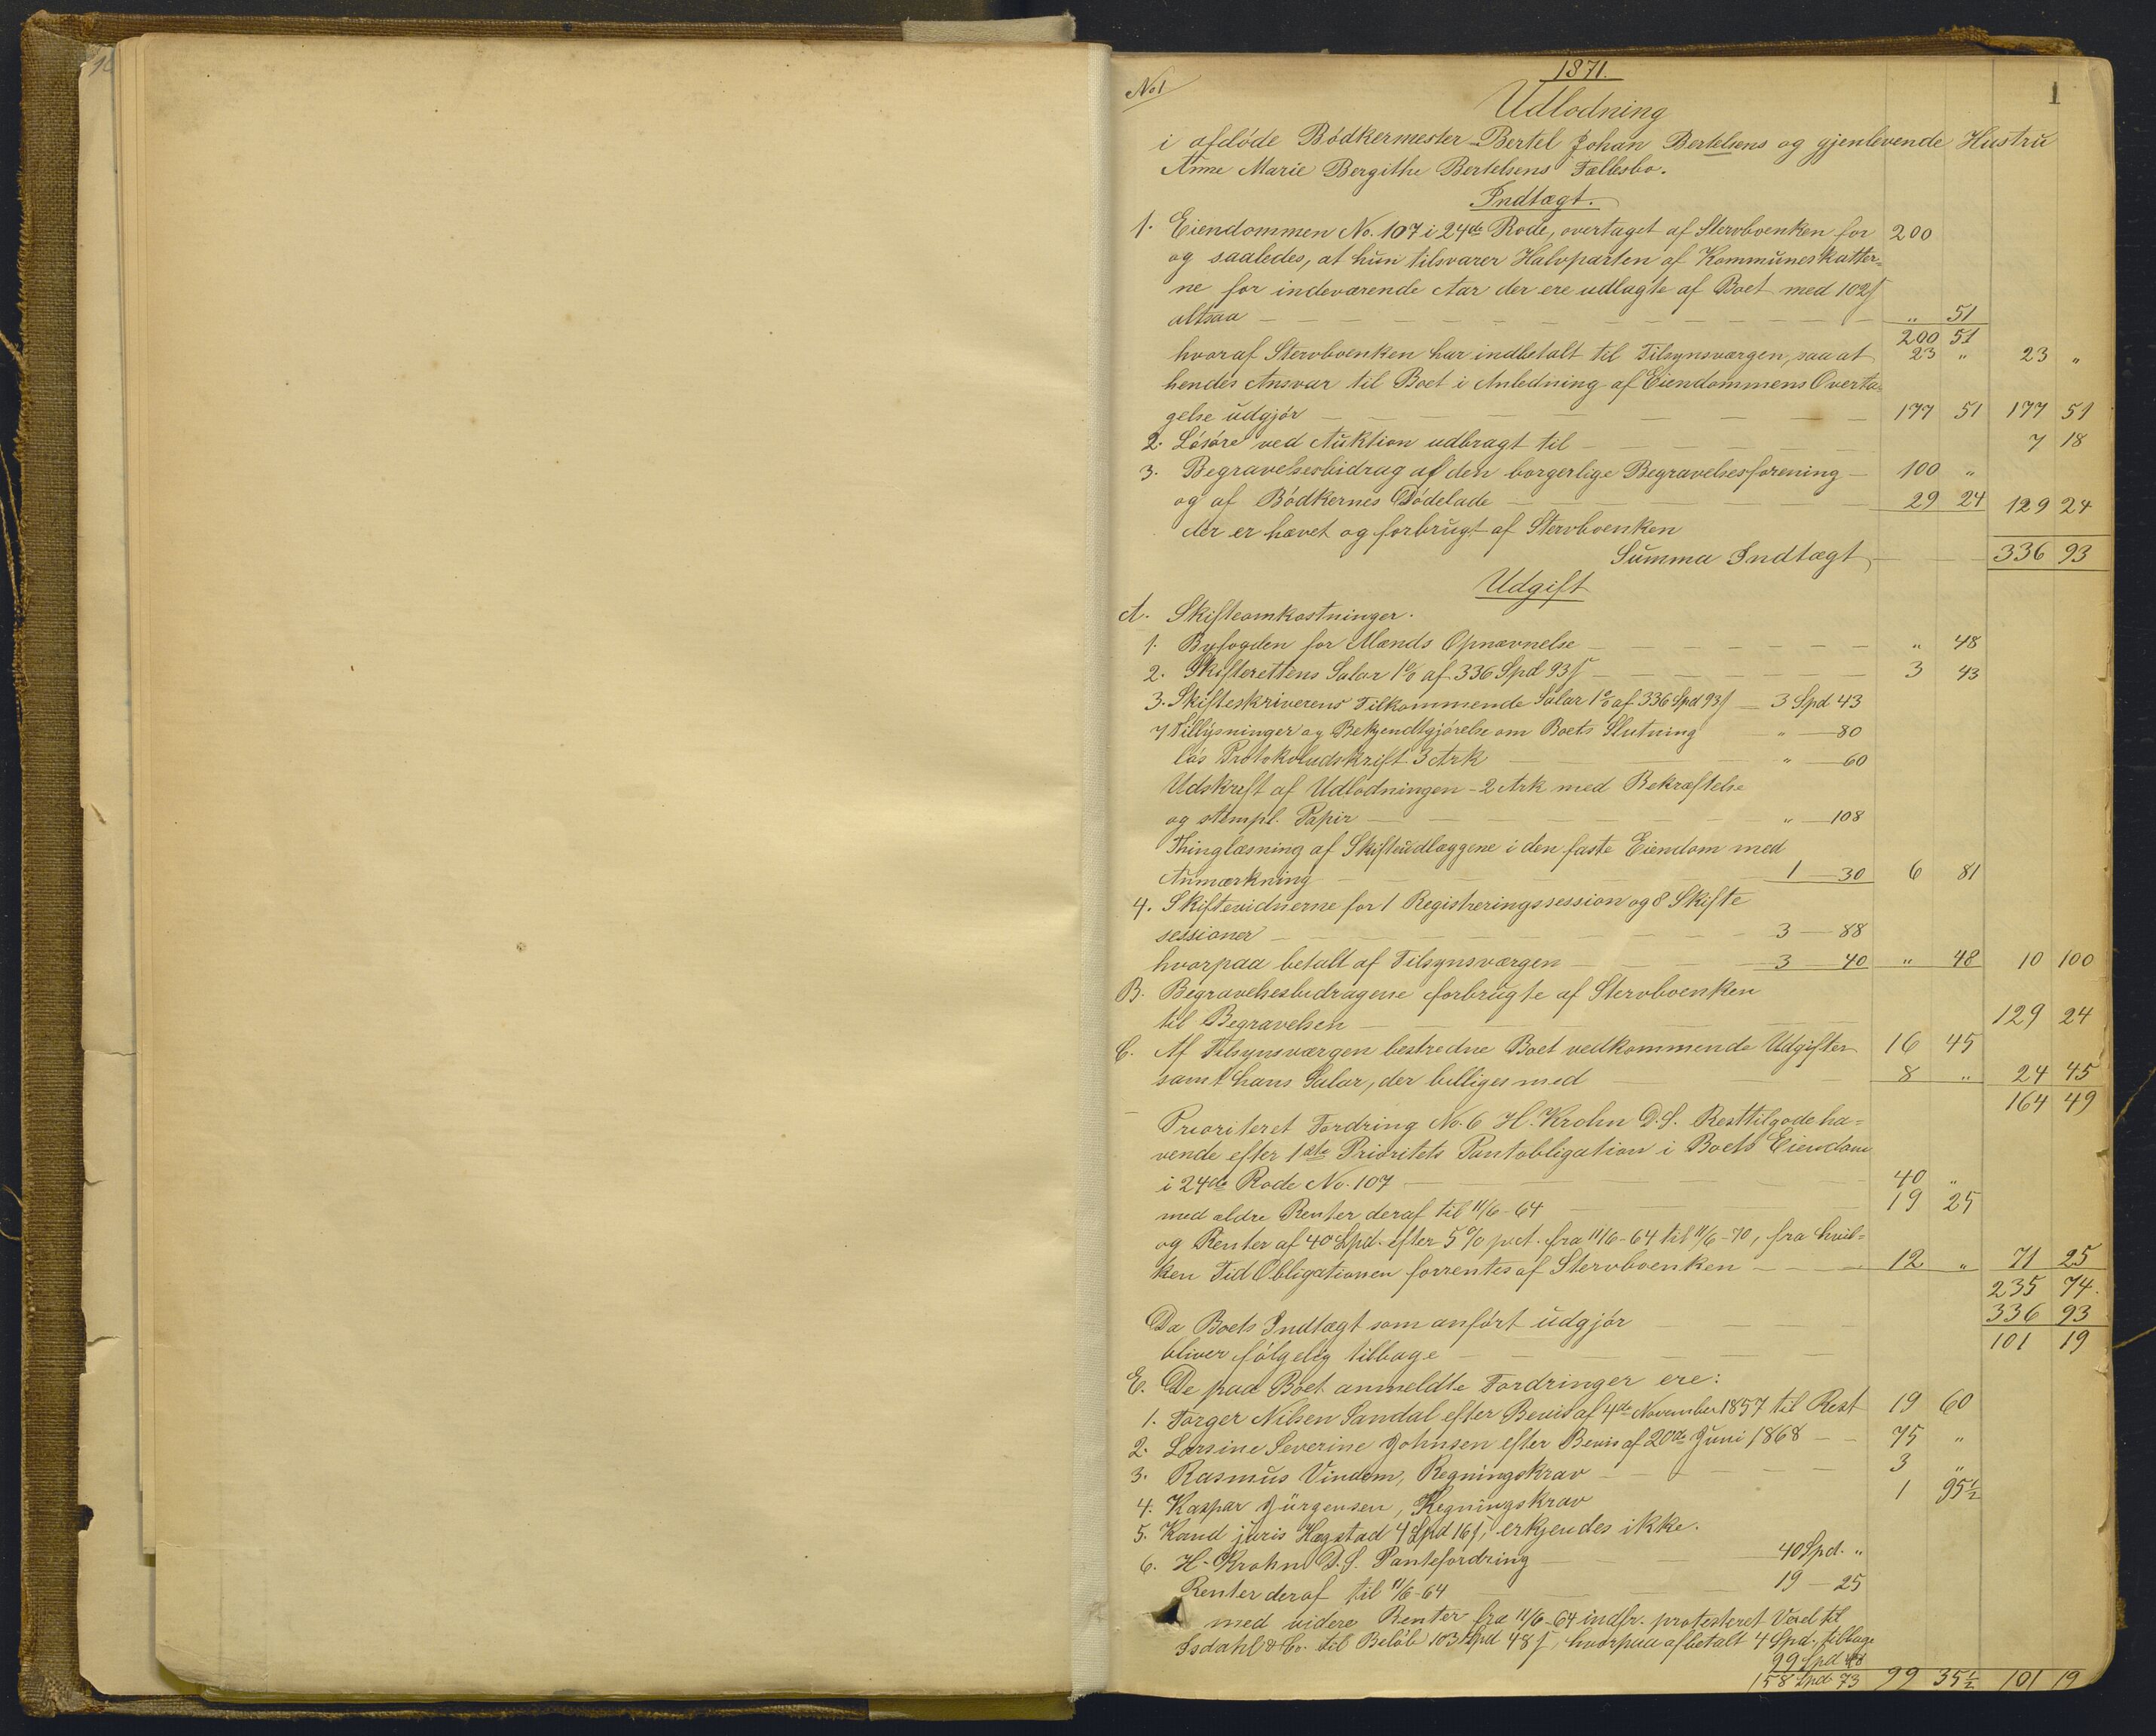 1871.
No 1
1
Udlodning
i afdöde Bödkermester Bertel Johan Bertelsens og gjenlevende Hustru
Anne Marie Bergithe Bertelsens Fællesbo.
Indtægt.
1. Eiendommen No. 107 i 24de Rode, overtaget af Stervboenken for 200
og saaledes, at hun tilsvarer Halvparten af Kommuneskatter=
ne for indeværende Aar der ere udlagte af Boet med 102 ſ
altsaa — „ 51
200 51
hvoraf Stervboenken har indbetalt til Tilsynsværgen, saa at 23 „ 23 „
hendes Ansvar til Boet i Anledning af Eiendommens Overta=
gelse udgjör — 177 51 177 51
2. Lösöre ved Auktion udbragt til — 7 18
3. Begravelsesbidrag af den borgerlige Begravelsesforening — 100 „
og af Bödkernes Dödelade — 29 24 129 24
der er hævet og forbrugt af Stervboenken
Summa Indtægt — 336 93
Udgift
A. Skifteomkostninger.
1. Byfogden for Mænds Opnævnelse — „ 48
2. Skifterettens Salar 1% af 336 Spd 93 ſ — 3 43
3. Skifteskriverens Tilkommende Salar 1% af 336 Spd 93 ſ — 3 Spd 43
7 Tillysninger og Bekjendtgjörelse om Boets Slutning „ — 80
lös Protokoludskrift 3 Ark — „ — 60
Udskrift af Udlodningen - 2 Ark med Bekræftelse
og stempl. Papir — „ — 108
Thinglæsning af Skifteudlæggene i den faste Eiendom med
Anmærkning — 1 — 30 6 81
4. Skiftevidnerne for 1 Registreringssession og 8 Skifte
sessioner — 3 — 88
hvorpaa betalt af Tilsynsværgen — 3 — 40 „ 48 10 100
B. Begravelsesbidragene forbrugte af Stervboenken
til Begravelsen — 129 24
C. Af Tilsynsværgen bestredne Boet vedkommende Udgifter 16 45
samt hans Salar, der billiges med — 8 „ 24 45
164 49
Prioriteret Fordring No. 6 H. Krohn D. S. Resttilgodeha=
vende efter 1ste Prioritets Pantobligation i Boets Eiendom
i 24de Rode No. 107 — 40 „
med ældre Renter deraf til 11/6-64 — 19 25
og Renter af 40 Spd. efter 5% pct. fra 11/6-64 til 11/6-70, fra hvil=
ken Tid Obligationen forrentes af Stervboenken — 12 „ 71 25
235 74.
Da Boets Indtægt som anfört udgjör — 336 93
bliver fölgelig tilbage — 101 19
E. De paa Boet anmeldte Fordringer ere:
1. Torger Nilsen Sandal efter Bevis af 4de November 1857 til Rest 19 60
2. Larsine Severine Johnsen efter Bevis af 20de Juni 1868 — 75 „
3. Rasmus Vindem, Regningskrav — 3 „
4. Kaspar Jürgensen, Regningskrav 1 95½
5. Kand juris Hægstad 4 Spd 16 ſ, erkjendes ikke.
6. H. Krohn D. S. Pantefordring — 40 Spd. „
Renter deraf til 11/6-64 — 19 — 25
med videre Renter fra 11/6-64 indfr. protesteret Vexel til
Isdahl & Co. til Belöb 103 Spd 48 ſ, hvorpaa afbetalt 4 Spd., tilbage
99 Spd 48
158 Spd 73 99 35½ 101 19